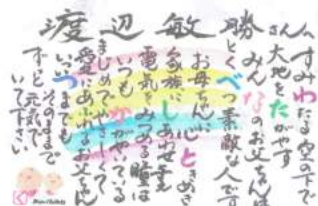 渡辺敏勝さん
すみわたる空の下で
大地をたがやす
みんなのお父ちゃんは
とくべつ素敵な人です
お母ちゃんに心ときめき
家族にしあわせ運ぶ
電気をみつめる瞳は
いつもかがやいている
まじめでやさしくて
愛にあふれるお父ちゃん
いつまでもそのままで
ずっと元気で
いて下さい